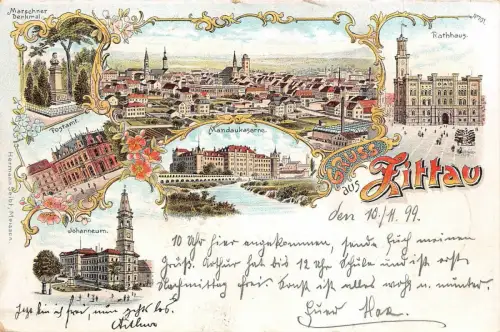 Marschner
Denkmal.
Rathhaus.
Postamt.
Mandaukaserne.
Gruss
aus
Zittau
Johanneum.
Hermann Seibt, Meissen.
den 10/11. 99.
10 Uhr hier angekommen, sende Euch meinen
Gruß. Arthur hat bis 12 Uhr Schule und ist erst
Nachmittag frei. Sonst ist alles wohl u. munter.
Euer Max.
Jetzt bin ich frei, nun geht's los.
Arthur